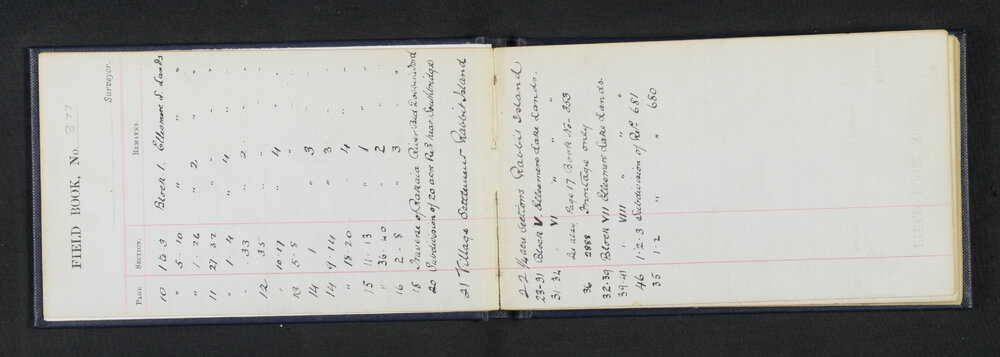 FIELD BOOK, No. 377
Surveyor.
PAGE. SECTION. REMARKS.
10 1 to 3 Block 1. Ellesmere L. Lands
" 5 - 10 " " "
" 1 - 26 " 2 " "
11 27 - 32 " " "
" 1 - 4 " 4 "
" 33 " 2 "
12 35 " "
" 10 · 17 " 4 "
13 5 - 8 " "
14 1 " 3 "
14 9 - 14 " 3 "
" 18 - 20 4 "
15 11 - 13 " 1 "
" 36 - 40 2 "
16 2 - 8 3 "
18 Traverse of Rakaia River Bed
20 Subdivision of 20 acre Res near Southbridge
21 Village Settlement Rabbit Island
22 1/4 acre Sections Rabbit Island
23-31 Block V. Ellesmere Lake Lands.
31·32 " VI " "
See also Page 17 Book No. 353
36 2888 Frontage only
32-39 Block VII Ellesmere Lake Lands.
39·41 " VIII " "
46 1-2-3 Subdivision of Res. 681
35 1·2 " " 680